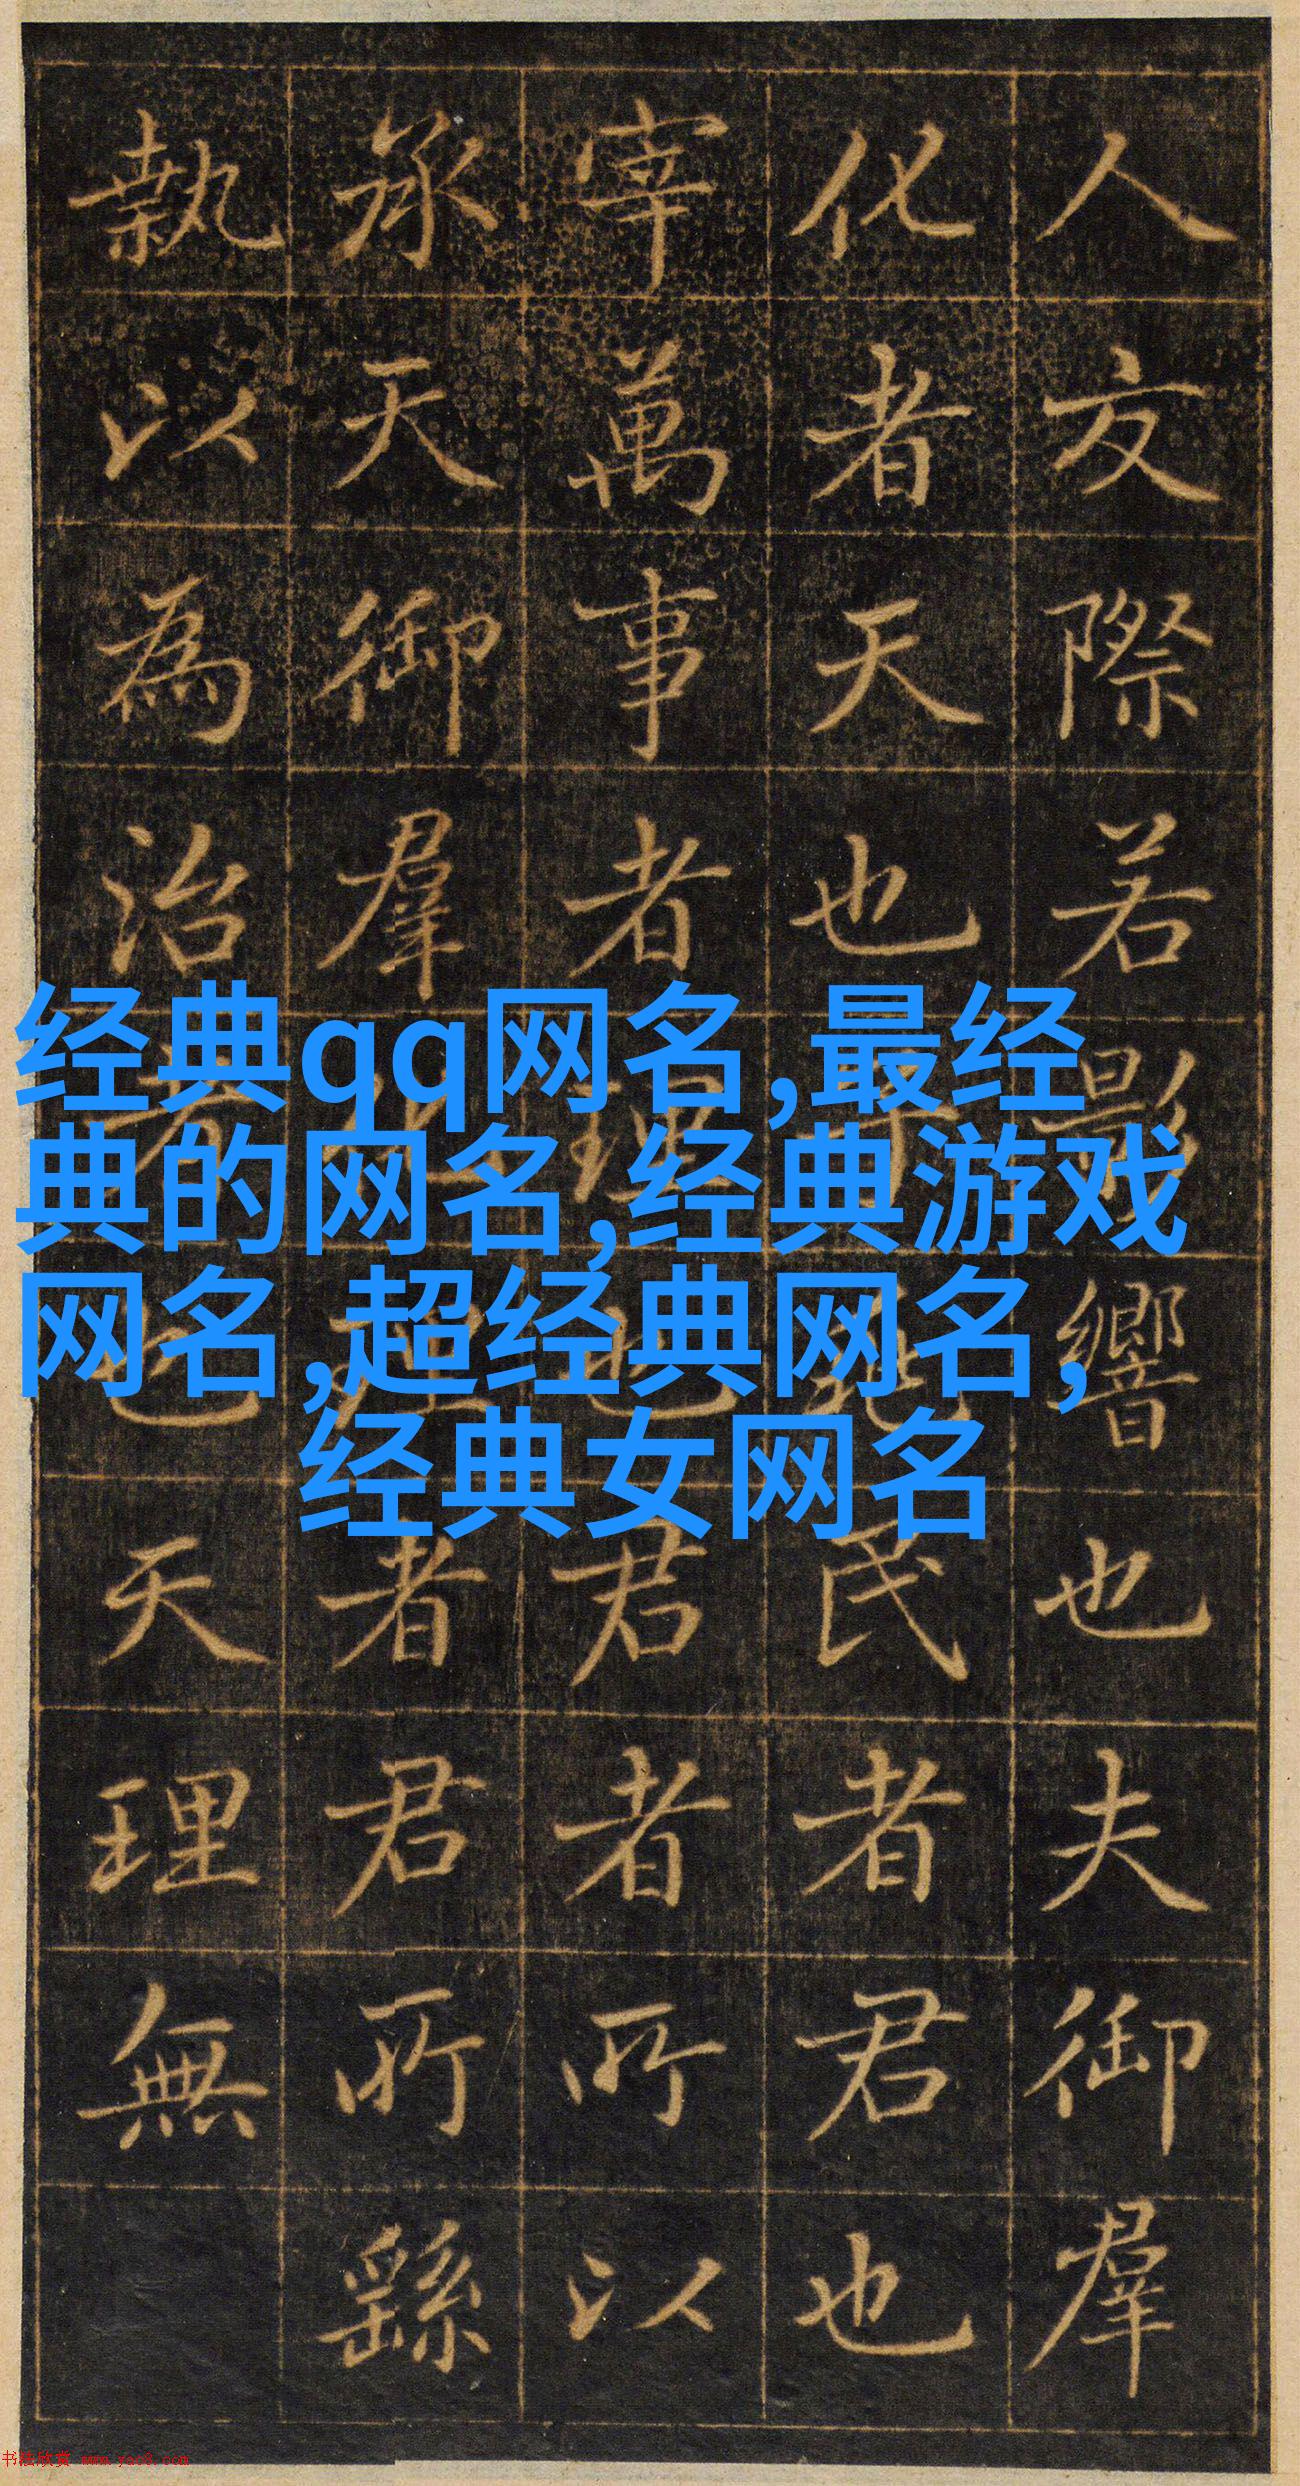 人友際若影響也夫御羣
化者天也民者君也
宰萬事者理也君者所以
承天御羣者君所繇
執以為治者也天理無
经典qq网名,最经
典的网名,经典游戏
网名,超经典网名,
经典女网名
书法欣赏 www.yac8.com